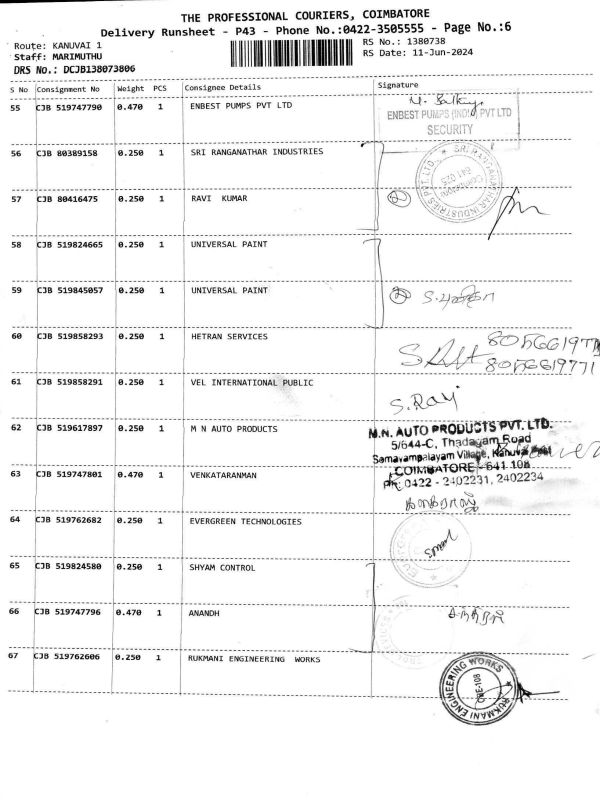 THE PROFESSIONAL COURIERS, COIMBATORE
Delivery Runsheet - P43 - Phone No.:0422-3505555 - Page No.:6
Route: KANUVAI 1
RS No.: 1380738
Staff: MARIMUTHU
RS Date: 11-Jun-2024
DRS No.: DCJB138073806
S No Consignment No Weight PCS Consignee Details Signature
55 CJB 519747790 0.470 1 ENBEST PUMPS PVT LTD
ENBEST PUMPS (INDIA) PVT LTD
SECURITY
56 CJB 80389158 0.250 1 SRI RANGANATHAR INDUSTRIES
SRI RANGANATHAR INDUSTRIES PVT. LTD.
57 CJB 80416475 0.250 1 RAVI KUMAR
2
58 CJB 519824665 0.250 1 UNIVERSAL PAINT
59 CJB 519845057 0.250 1 UNIVERSAL PAINT
2
60 CJB 519858293 0.250 1 HETRAN SERVICES
8056619771
8056619771
61 CJB 519858291 0.250 1 VEL INTERNATIONAL PUBLIC
S. Ravi
62 CJB 519617897 0.250 1 M N AUTO PRODUCTS
M.N. AUTO PRODUCTS PVT. LTD.
5/644-C, Thadagam Road
Somavampalayam Village, Kanuvai Post
COIMBATORE - 641 108
Ph: 0422 - 2402231, 2402234
63 CJB 519747801 0.470 1 VENKATARANMAN
64 CJB 519762682 0.250 1 EVERGREEN TECHNOLOGIES
65 CJB 519824580 0.250 1 SHYAM CONTROL
66 CJB 519747796 0.470 1 ANANDH
67 CJB 519762606 0.250 1 RUKMANI ENGINEERING WORKS
RUKMANI ENGINEERING WORKS
CBE-108